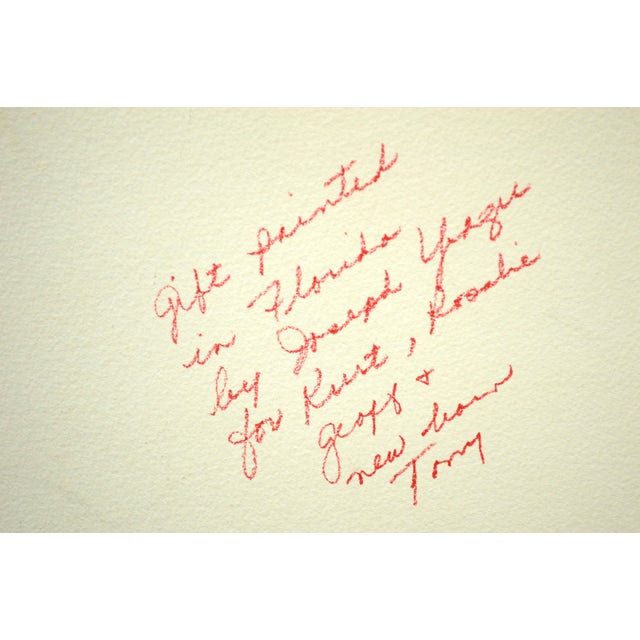 Gift painted
in Florida
by Joseph
for Kurt, Rosalie
Geoff +
new born
Tony